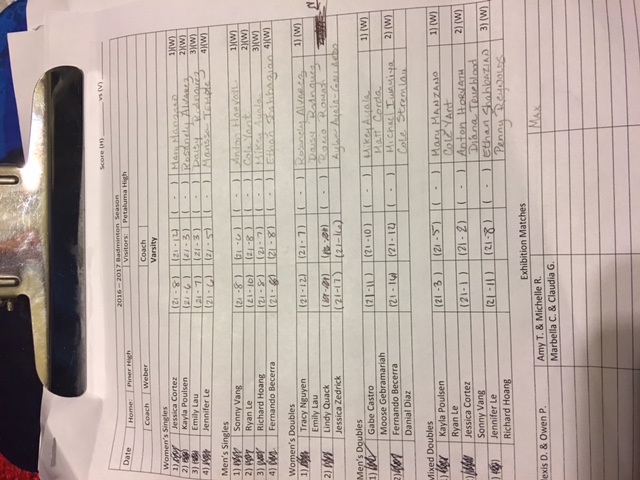 Score (H) vs (V)
2016 – 2017 Badminton Season
Date Home: Piner High Visitors: Petaluma High
Coach Weber Coach
Varsity
Women's Singles
1) Jessica Cortez (21 - 8) (21 - 12) ( - ) Mary Manzano 1)(W)
2) Kayla Poulsen (21 - 6) (21 - 3) ( - ) Alvarez 2)(W)
3) Emily Lau (21 - 7) (21 - 3) ( - ) Daisy Rodriguez 3)(W)
4) Jennifer Le (21 - 6) (21 - 5) ( - ) Temple 4)(W)
Men's Singles
1) Sonny Vang (21 - 8) (21 - 6) ( - ) Anton Horvath 1)(W)
2) Ryan Le (21 - 10) (21 - 8) ( - ) Cole Yant 2)(W)
3) Richard Hoang (21 - 8) (21 - 7) ( - ) Mikey Ayala 3)(W)
4) Fernando Becerra (21 - 8) (21 - 8) ( - ) Ethan Shahbazian 4)(W)
Women's Doubles
1) Tracy Nguyen (21 - 12) (21 - 7) ( - ) Alvarez 1) (W)
Emily Lau Daisy Rodriguez
2) Lindy Quack ( - )
Jessica Zedrick (21 - 17) (21 - 16)
Men's Doubles
1) Gabe Castro (21 - 11) (21 - 10) ( - ) Mikey Ayala 1) (W)
Moose Gebramariah Matt
2) Fernando Becerra (21 - 14) (21 - 12) ( - ) Michael 2) (W)
Danial Diaz Cole
Mixed Doubles
1) Kayla Poulsen (21 - 3) (21 - 5) ( - ) Mary Manzano 1) (W)
Ryan Le Cole Yant
Jessica Cortez (21 - 1) (21 - 2) ( - ) Anton Horvath 2) (W)
Sonny Vang Diana
Jennifer Le (21 - 11) (21 - 8) ( - ) Ethan Shahbazian 3) (W)
Richard Hoang Penny Reynolds
Exhibition Matches
exis D. & Owen P. Amy T. & Michelle R. Max
Marbella C. & Claudia G.